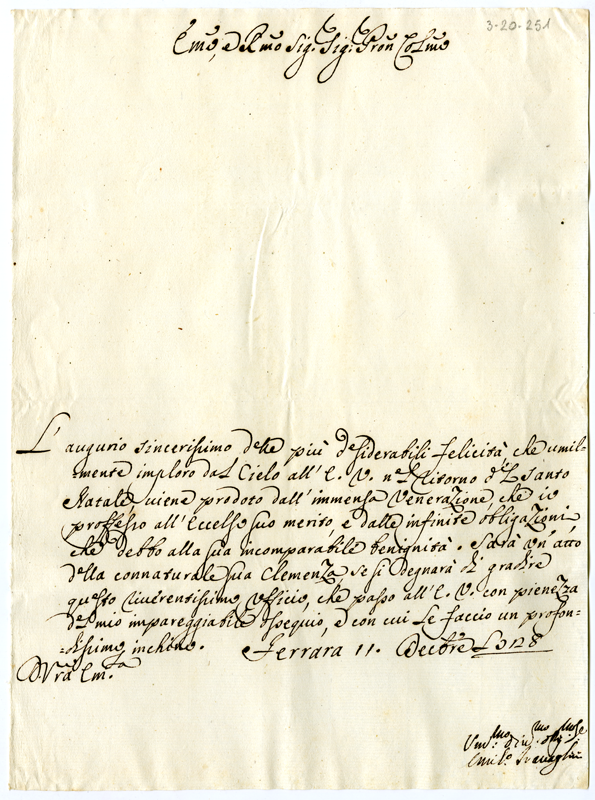 3-20-251
Emo, e Rmo Sig: Sig: Pron Colmo
L'augurio sincerissimo delle più desiderabili felicità che umil-
mente imploro dal Cielo all' E. V. nel Ritorno del Santo
Natale, viene prodoto dall' immensa Venerazione, che io
professo all' Eccelso suo merito, e dalle infinite obligazioni
che debbo alla sua incomparabile benignità. Sarà un' atto
della connaturale sua Clemenza, se si degnarà di gradire
questo riverentissimo Ufficio, che passo all' E. V. con pienezza
del mio impareggiabile Ossequio, e con cui le faccio un profon-
dissimo inchino. Ferrara 11. Decbre
D Vra Em.za
Umo Divmo